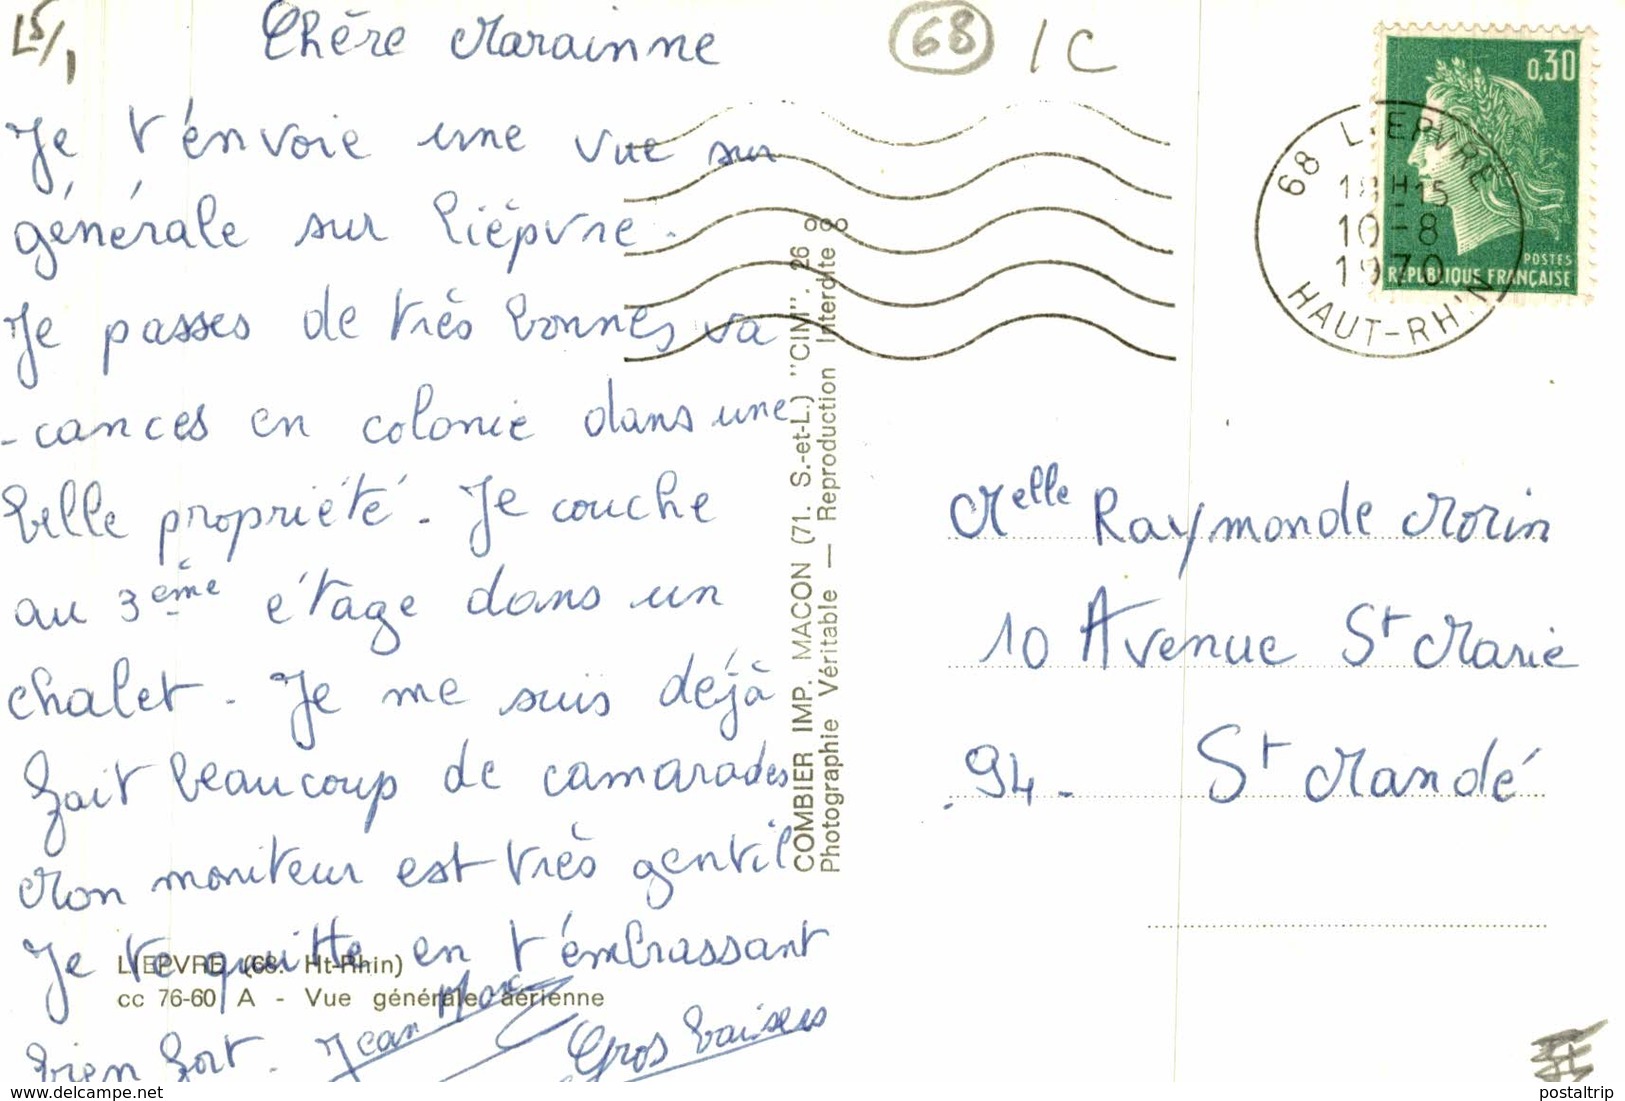 L5/1
Chère Marainne
68
1C
Je t'envoie une vue sur
générale sur Lièpvre.
Je passes de très bonnes va
-cances en colonie dans une
belle propriété. Je couche
au 3ème étage dans un
chalet. Je me suis déjà
fait beaucoup de camarades
Mon moniteur est très gentil
Je te quitte en t'embrassant
bien fort. Jean Marc
Gros baisers
LIEPVRE (68. Ht-Rhin)
cc 76-60 A - Vue générale aérienne
COMBIER IMP. MACON (71. S.-et-L.) "CIM". 26 8
Photographie Véritable — Reproduction Interdite 8
0,30
POSTES
REPUBLIQUE FRANÇAISE
68 LIEPVRE
18H15
10-8
1970
HAUT-RHIN
Melle Raymonde Morin
10 Avenue St Marie
94. St Mandé
www.delcampe.net
postaltrip